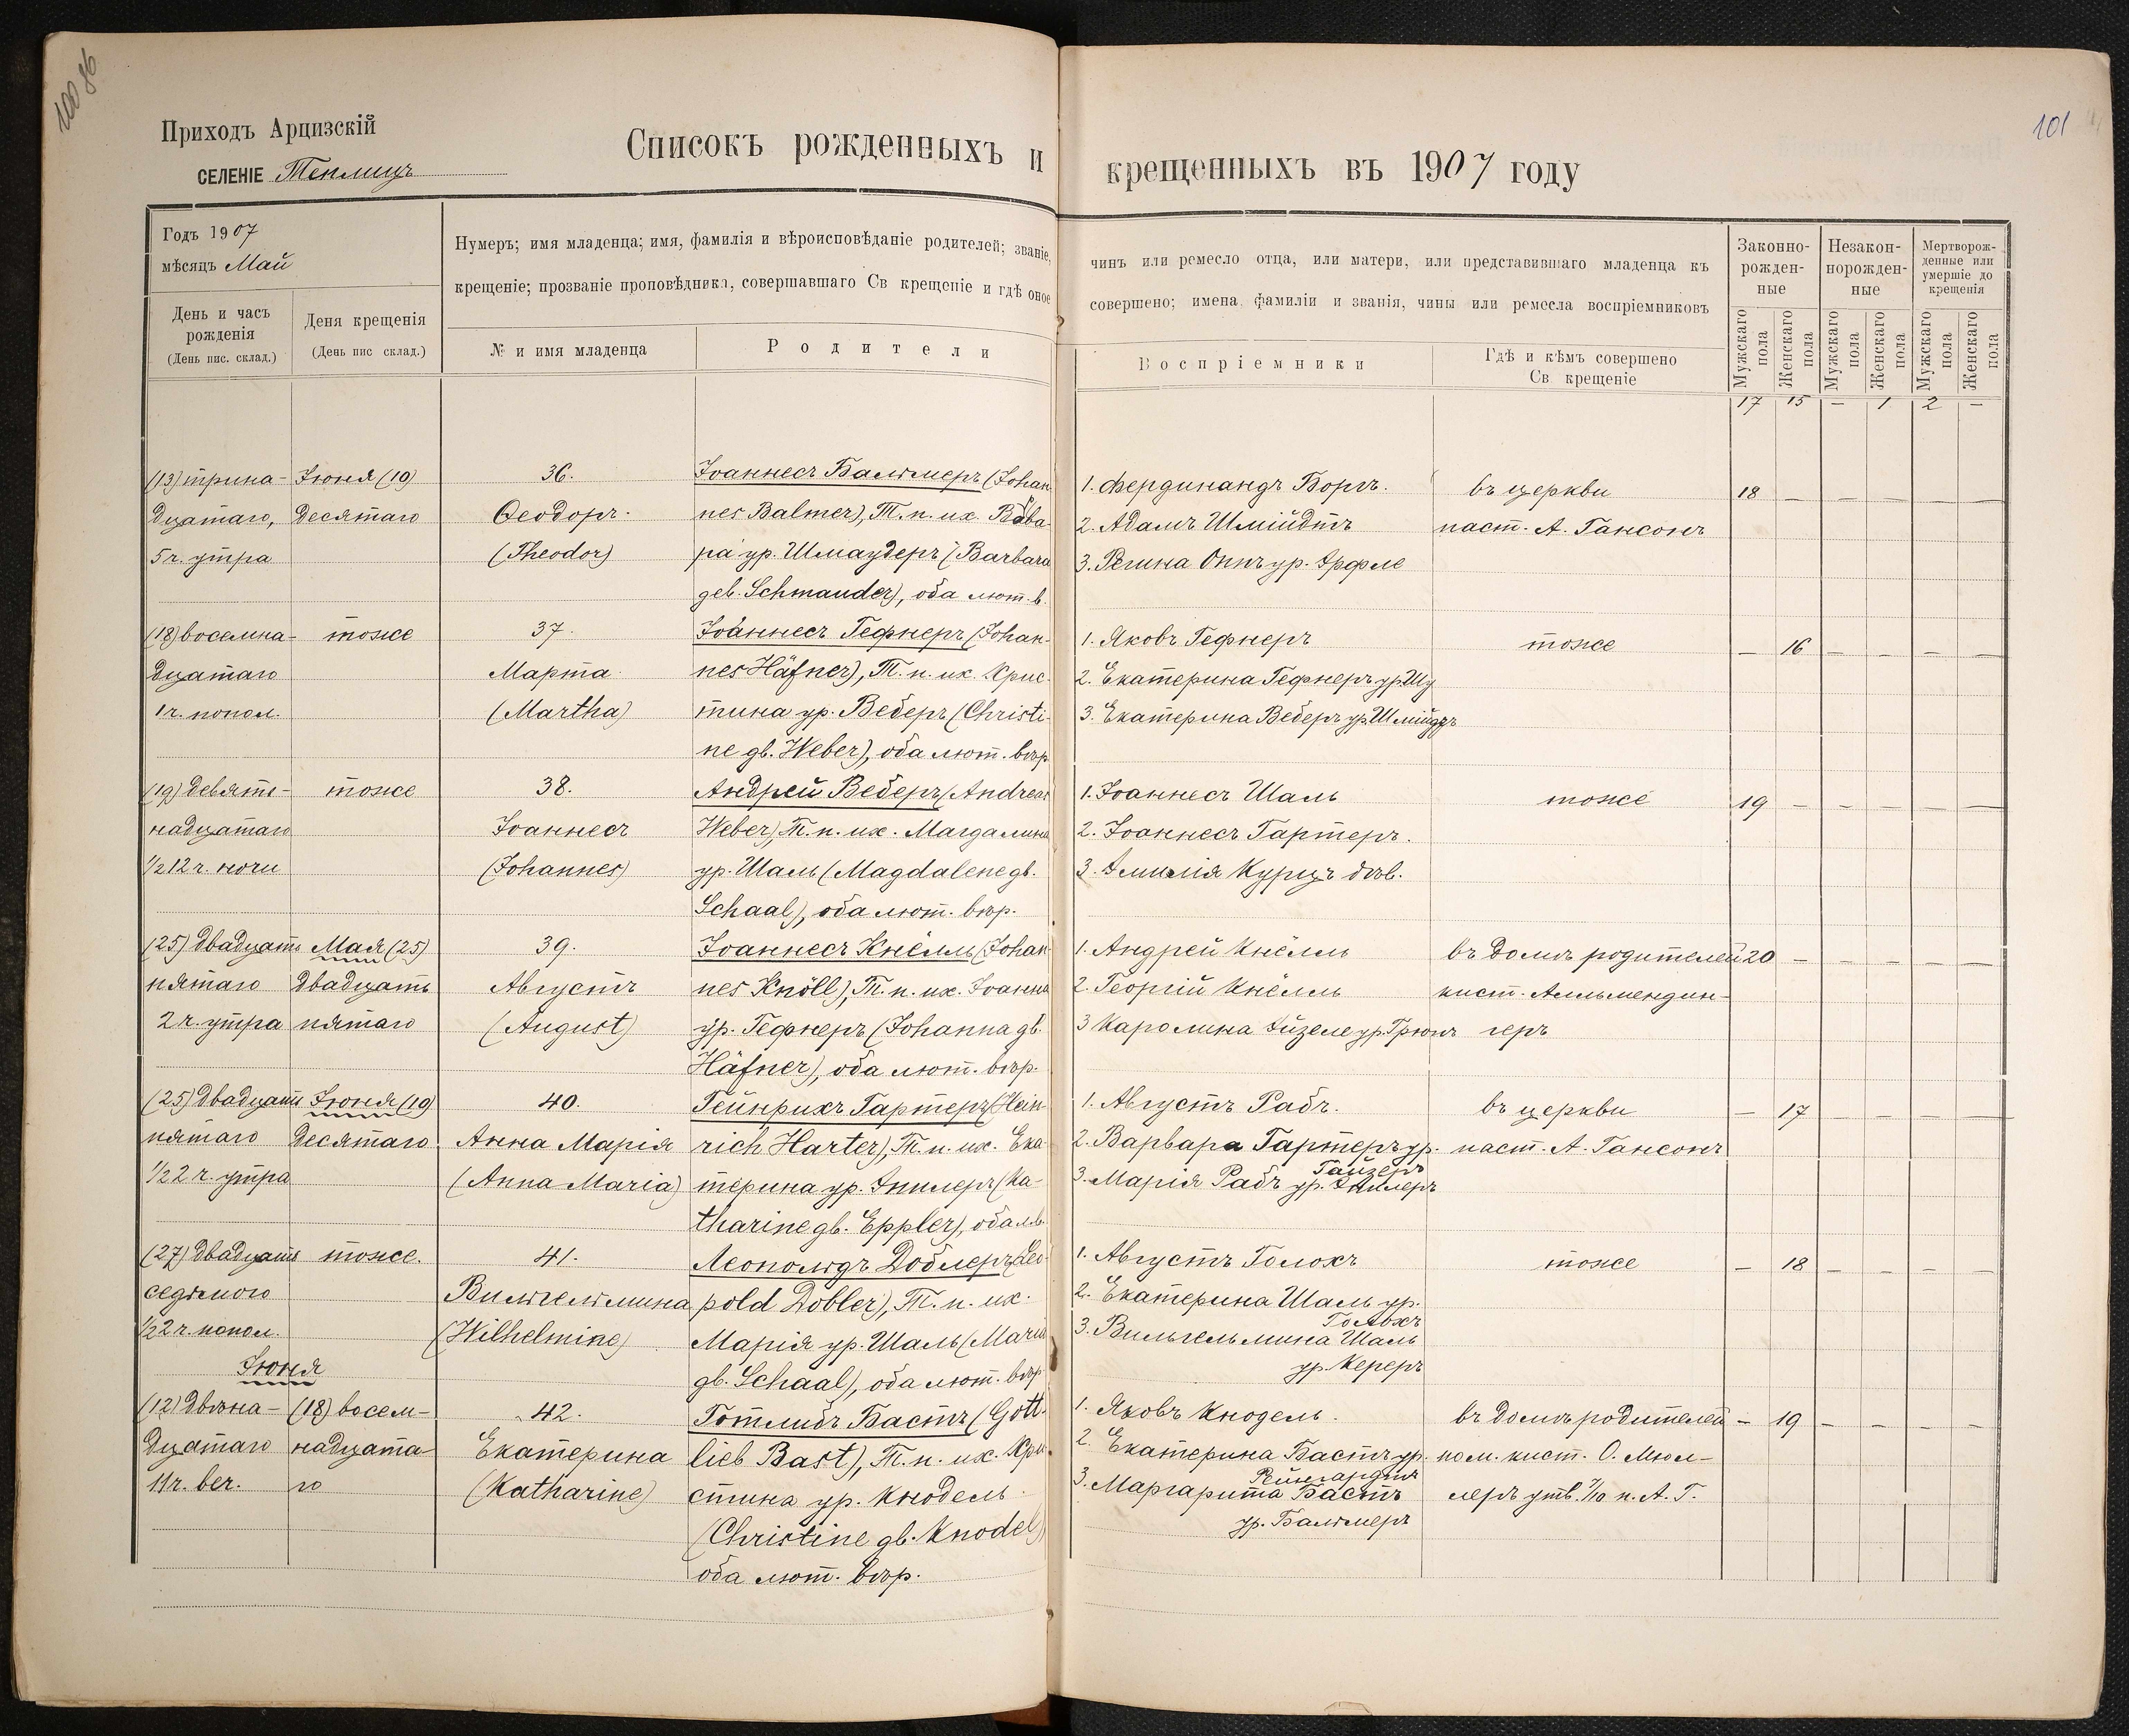 100 86
101
Приходъ Арцизскій
СЕЛЕНІЕ Теплицъ
Списокъ рожденныхъ и крещенныхъ въ 1907 году
Годъ 1907
мѣсяцъ Май
Нумеръ; имя младенца; имя, фамилія и вѣроисповѣданіе родителей; званіе,
крещеніе; прозваніе проповѣдника, совершавшаго Св крещеніе и гдѣ оное
чинъ или ремесло отца, или матери, или представившаго младенца къ
совершено; имена, фамиліи и званія, чины или ремесла воспріемниковъ
Законно-
рожден-
ные
Незакон-
норожден-
ные
Мертворож-
денные или
умершіе до
крещенія
День и часъ
рожденія
(День пис. склад.)
Деня крещенія
(День пис склад.)
№ и имя младенца
Родители
Воспріемники
Гдѣ и кѣмъ совершено
Св крещеніе
Мужскаго пола
Женскаго пола
Мужскаго пола
Женскаго пола
Мужскаго пола
Женскаго пола
17 15 — 1 2 —
(13) трина-
дцатаго,
5 ч. утра
Іюня (10)
десятаго
36.
Ѳеодоръ.
(Theodor)
Іоаннесъ Бальмеръ (Johan
nes Balmer), Т. п. их. Варба-
ра ур. Шмаудеръ (Barbara
geb. Schmauder), оба лют. в.
1. Фердинандъ Боргъ.
2. Адамъ Шмійдтъ
3. Регина Оппъ ур. Эрфле
въ церкви
паст. А. Гансонъ
18 — — — — —
(18) восемна-
дцатаго
1 ч. попол.
тоже
37.
Марта
(Martha)
Іоаннесъ Гефнеръ (Johan-
nes Häfner), Т. п. их. Крис-
тина ур. Веберъ (Christi-
ne gb. Weber), оба лют. вѣр.
1. Яковъ Гефнеръ
2. Екатерина Гефнеръ ур. Шу
3. Екатерина Веберъ ур. Шмійдтъ
тоже
— 16 — — — —
(19) девят-
надцатаго
1/2 12 ч. ночи
тоже
38.
Іоаннесъ
(Johannes)
Андрей Веберъ (Andreas
Weber), Т. п. их. Магдалина
ур. Шаль (Magdalene gb.
Schaal), оба лют. вѣр.
1. Іоаннесъ Шаль
2. Іоаннесъ Гартеръ.
3. Эмилія Курцъ дѣв.
тоже
19 — — — — —
(25) двадцать
пятаго
2 ч. утра
Мая (25)
двадцать
пятаго
39.
Августъ
(August)
Іоаннесъ Кнёлль (Johan-
nes Knöll), Т. п. их. Іоанна
ур. Гефнеръ (Johanna gb.
Häfner), оба лют. вѣр.
1. Андрей Кнёлль
2. Георгій Кнёлль
3 Каролина Эйзеле ур. Грюнъ
въ домѣ родителей
кист. Алльмендин-
геръ
20 — — — — —
(25) двадцать
пятаго
1/2 2 ч. утра
Іюня (10)
десятаго
40.
Анна Марія
(Anna Maria)
Гейнрихъ Гартеръ (Hein-
rich Harter), Т. п. их. Ека-
терина ур. Эпплеръ (Ka-
tharine gb. Eppler), оба л.в.
1. Августъ Рабъ.
2. Варвара Гартеръ ур.
Гайзеръ
3. Марія Рабъ ур. Эпплеръ
въ церкви
паст. А. Гансонъ
— 17 — — — —
(27) двадцать
седьмого
1/2 2 ч. попол.
тоже.
41.
Вильгельмина
(Wilhelmine)
Леопольдъ Доблеръ (Leo-
pold Dobler), Т. п. их.
Марія ур. Шаль (Maria
gb. Schaal), оба лют. вѣр.
1. Августъ Голохъ
2. Екатерина Шаль ур.
Голохъ
3. Вильгельмина Шаль
ур. Кереръ
тоже
— 18 — — — —
Іюня
(12) двѣна-
дцатаго
11 ч. веч.
(18) восем-
надцата-
го
42.
Екатерина
(Katharine)
Готлибъ Бастъ (Gott-
lieb Bast), Т. п. их. Кри-
стина ур. Кнодель
(Christine gb. Knodel)
оба лют. вѣр.
1. Яковъ Кнодель.
2. Екатерина Бастъ ур.
Рейнгардтъ
3. Маргарита Бастъ
ур. Бальмеръ
въ домѣ родителей
пом. кист. О. Мюл-
леръ утв. 7/10 п. А. Г.
— 19 — — — —